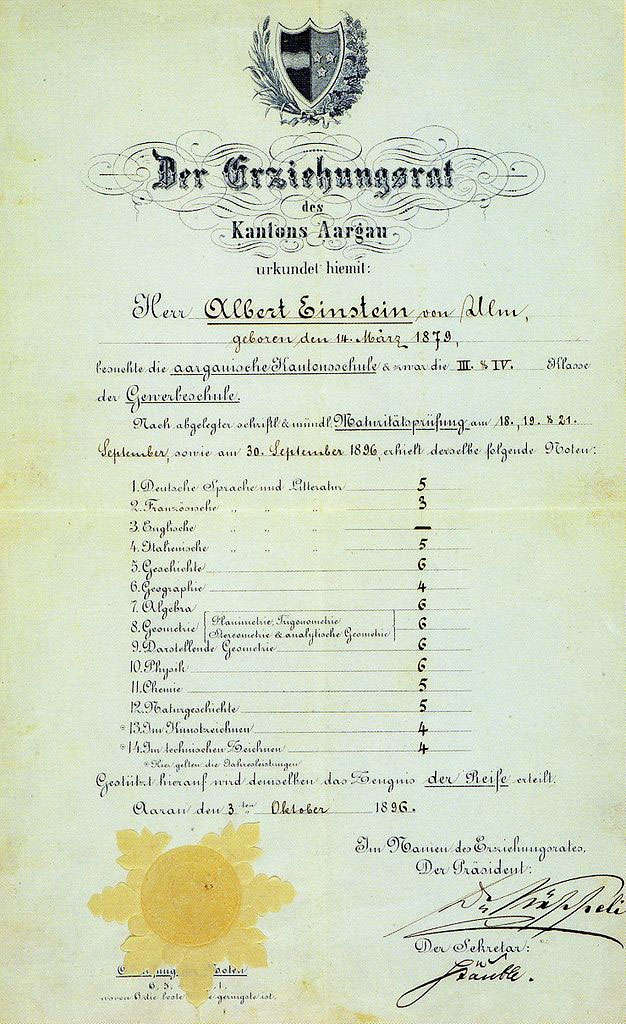 Der Erziehungsrat
des
Kantons Aargau
urkundet hiemit:
Herr Albert Einstein von Ulm,
geboren den 14. März 1879,
besuchte die aargauische Kantonsschule & zwar die III. & IV. Klasse
der Gewerbeschule.
Nach abgelegter schriftl. & mündl. Maturitätsprüfung am 18., 19. & 21.
September, sowie am 30. September 1896, erhielt derselbe folgende Noten:
1. Deutsche Sprache und Litteratur 5
2. Französische " " " 3
3. Englische " " " —
4. Italienische " " " 5
5. Geschichte 6
6. Geographie 4
7. Algebra 6
8. Geometrie (Planimetrie, Trigonometrie 6
Stereometrie & analytische Geometrie)
9. Darstellende Geometrie 6
10. Physik 6
11. Chemie 5
12. Naturgeschichte 5
*13. Im Kunstzeichnen 4
*14. Im technischen Zeichnen 4
*Hier gelten die Jahresleistungen
Gestützt hierauf wird demselben das Zeugnis der Reife erteilt.
Aarau den 3ten Oktober 1896.
Im Namen des Erziehungsrates,
Der Präsident:
Dr. Käppeli
Der Sekretär:
Stäuble.
Noten
6, 5,
1.
wovon 6 die beste
geringste ist.